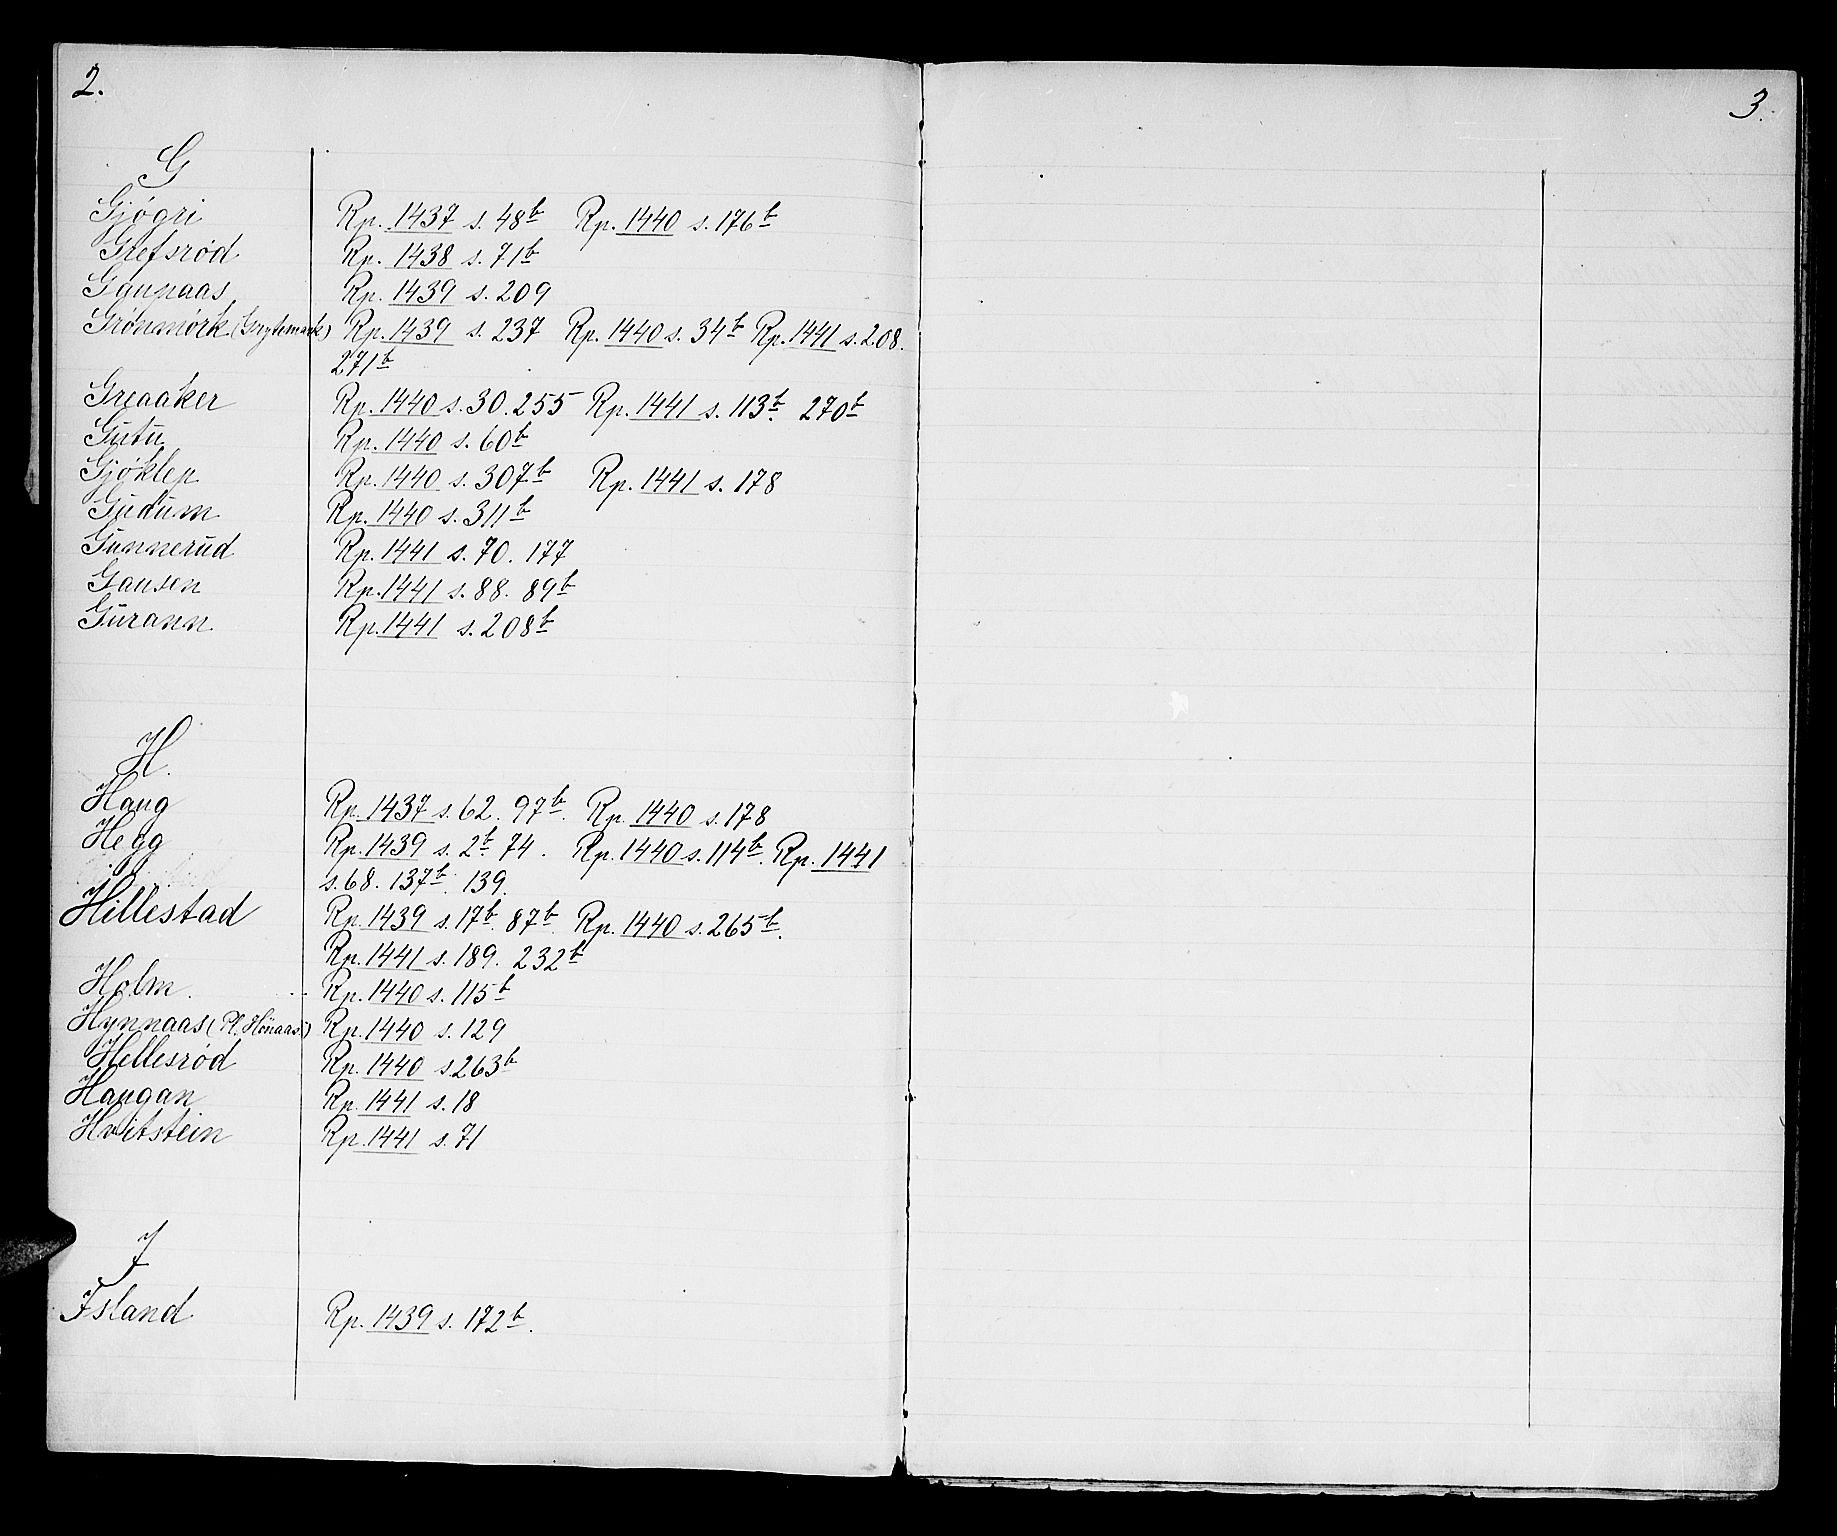 2.
G
Gjögri Rp. 1437 s. 48b Rp. 1440 s. 176b
Grefsröd Rp. 1438 s. 71b
Gaupaas Rp. 1439 s. 209
Grönmörk (Grytemark) Rp. 1439 s. 237 Rp. 1440 s. 34b Rp. 1441 s. 208.
271b
Greaaker Rp. 1440 s. 30. 255 Rp. 1441 s. 113b. 270b
Gutu Rp. 1440 s. 60b
Gjöklep Rp. 1440 s. 307b Rp. 1441 s. 178
Gudum Rp. 1440 s. 311b
Gunnerud Rp. 1441 s. 70. 177
Gausen Rp. 1441 s. 88. 89b
Gurann Rp. 1441 s. 208b
H.
Haug Rp. 1437 s. 62. 97b. Rp. 1440 s. 178
Hegg Rp. 1439 s. 2b. 74. Rp. 1440 s. 114b. Rp. 1441
s. 68. 137b. 139.
Hillestad Rp. 1439 s. 17b. 87b. Rp. 1440 s. 265b.
Rp. 1441 s. 189. 232b
Holm. Rp. 1440 s. 115b
Hynnaas (Pl. Hönaas) Rp. 1440 s. 129
Hellesröd Rp. 1440 s. 263b
Haugan Rp. 1441 s. 18
Hvitstein Rp. 1441 s. 71
I
Island Rp. 1439 s. 172b.
3.